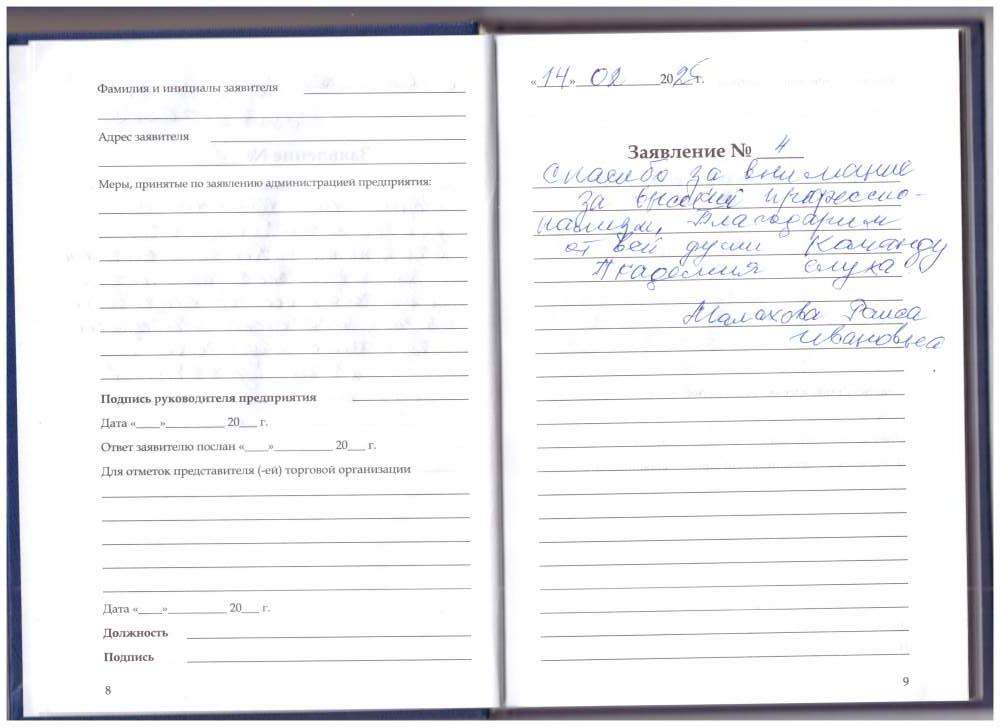 Фамилия и инициалы заявителя
Адрес заявителя
Меры, принятые по заявлению администрацией предприятия:
Подпись руководителя предприятия
Дата «____»__________ 20___ г.
Ответ заявителю послан «____»__________ 20___ г.
Для отметок представителя (-ей) торговой организации
Дата «____»__________ 20___ г.
Должность
Подпись
8
«14» 02 2025 г.
Заявление № 4
Спасибо за внимание
за высокий профессио-
нализм, Благодарим
от всей души Команду
Академия слуха
Малахова Раиса
Ивановна
9